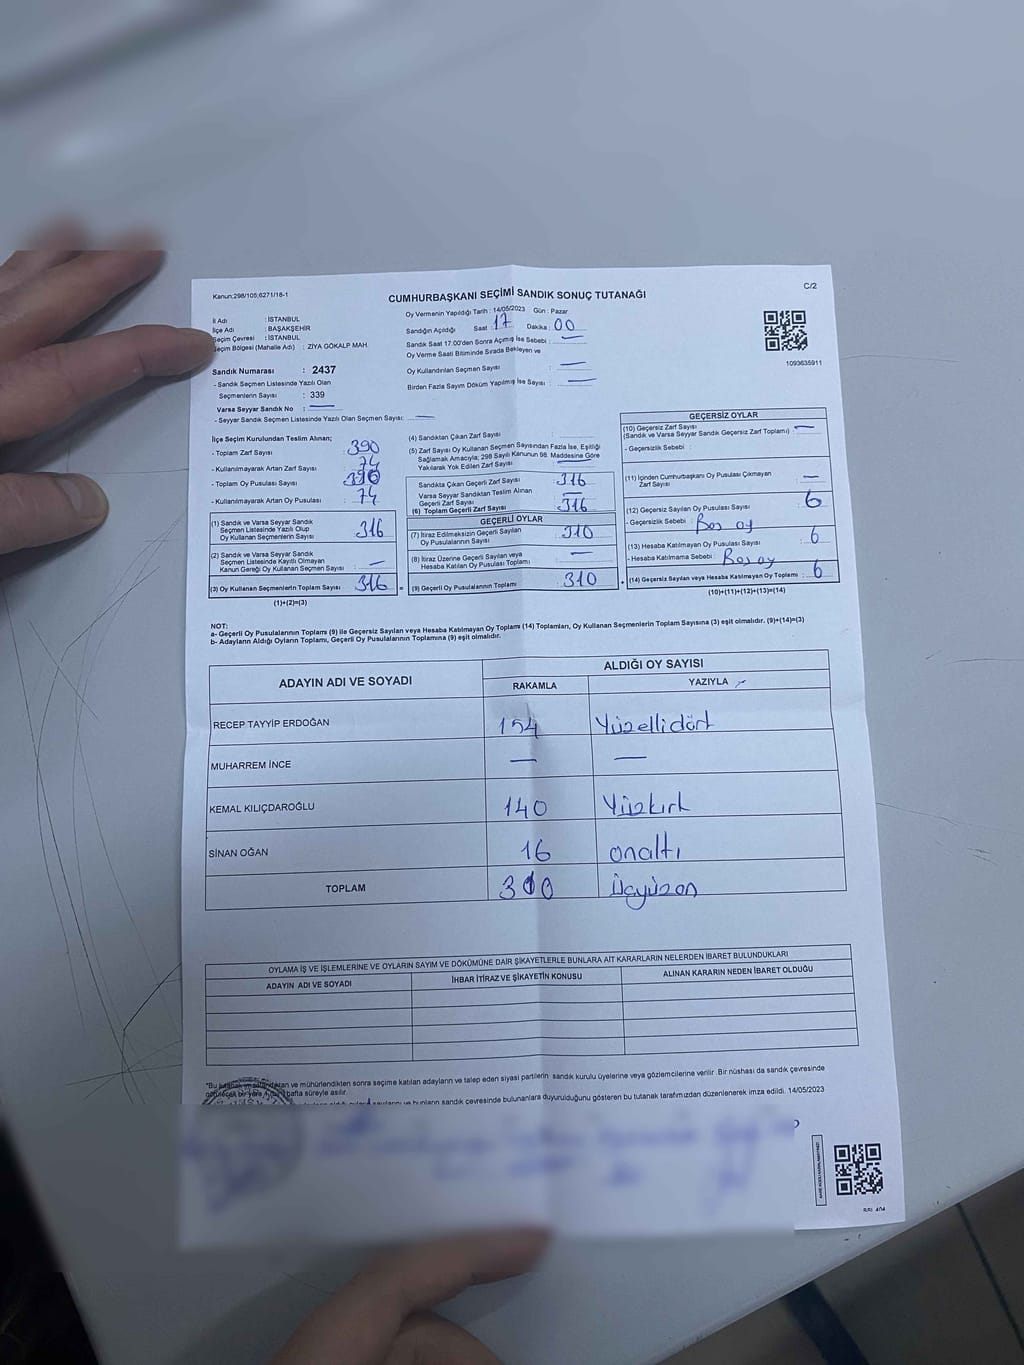 Kanun:298/105;6271/18-1
C/2
CUMHURBAŞKANI SEÇİMİ SANDIK SONUÇ TUTANAĞI
İl Adı : İSTANBUL
İlçe Adı : BAŞAKŞEHİR
Seçim Çevresi : İSTANBUL
Seçim Bölgesi (Mahalle Adı) : ZİYA GÖKALP MAH.
Oy Vermenin Yapıldığı Tarih : 14/05/2023 Gün : Pazar
Sandığın Açıldığı Saat : 17 Dakika : 00
Sandık Saat 17:00'den Sonra Açılmış İse Sebebi : —
Oy Verme Saati Bitiminde Sırada Bekleyen ve
Oy Kullandırılan Seçmen Sayısı : —
Birden Fazla Sayım Döküm Yapılmış İse Sayısı : —
1093635911
Sandık Numarası : 2437
- Sandık Seçmen Listesinde Yazılı Olan
Seçmenlerin Sayısı : 339
Varsa Seyyar Sandık No : —
- Seyyar Sandık Seçmen Listesinde Yazılı Olan Seçmen Sayısı: —
İlçe Seçim Kurulundan Teslim Alınan;
- Toplam Zarf Sayısı : 390
- Kullanılmayarak Artan Zarf Sayısı : 74
- Toplam Oy Pusulası Sayısı : 390
- Kullanılmayarak Artan Oy Pusulası : 74
(1) Sandık ve Varsa Seyyar Sandık
Seçmen Listesinde Yazılı Olup
Oy Kullanan Seçmenlerin Sayısı : 316
(2) Sandık ve Varsa Seyyar Sandık
Seçmen Listesinde Kayıtlı Olmayan
Kanun Gereği Oy Kullanan Seçmen Sayısı : —
(3) Oy Kullanan Seçmenlerin Toplam Sayısı : 316 =
(1)+(2)=(3)
(4) Sandıktan Çıkan Zarf Sayısı :
(5) Zarf Sayısı Oy Kullanan Seçmen Sayısından Fazla İse, Eşitliği
Sağlamak Amacıyla; 298 Sayılı Kanunun 98. Maddesine Göre
Yakılarak Yok Edilen Zarf Sayısı :
Sandıkta Çıkan Geçerli Zarf Sayısı : 316
Varsa Seyyar Sandıktan Teslim Alınan
Geçerli Zarf Sayısı : —
(6) Toplam Geçerli Zarf Sayısı : 316
GEÇERLİ OYLAR
(7) İtiraz Edilmeksizin Geçerli Sayılan
Oy Pusulalarının Sayısı : 310
(8) İtiraz Üzerine Geçerli Sayılan veya
Hesaba Katılan Oy Pusulası Toplamı : —
(9) Geçerli Oy Pusulalarının Toplamı : 310 +
GEÇERSİZ OYLAR
(10) Geçersiz Zarf Sayısı
(Sandık ve Varsa Seyyar Sandık Geçersiz Zarf Toplamı) : —
- Geçersizlik Sebebi :
(11) İçinden Cumhurbaşkanı Oy Pusulası Çıkmayan
Zarf Sayısı : —
(12) Geçersiz Sayılan Oy Pusulası Sayısı : 6
- Geçersizlik Sebebi : Boş oy
(13) Hesaba Katılmayan Oy Pusulası Sayısı : 6
- Hesaba Katılmama Sebebi : Boş oy
(14) Geçersiz Sayılan veya Hesaba Katılmayan Oy Toplamı : 6
(10)+(11)+(12)+(13)=(14)
NOT:
a- Geçerli Oy Pusulalarının Toplamı (9) ile Geçersiz Sayılan veya Hesaba Katılmayan Oy Toplamı (14) Toplamları, Oy Kullanan Seçmenlerin Toplam Sayısına (3) eşit olmalıdır. (9)+(14)=(3)
b- Adayların Aldığı Oyların Toplamı, Geçerli Oy Pusulalarının Toplamına (9) eşit olmalıdır.
ADAYIN ADI VE SOYADI
ALDIĞI OY SAYISI
RAKAMLA YAZIYLA
RECEP TAYYİP ERDOĞAN 154 Yüzellidört
MUHARREM İNCE — —
KEMAL KILIÇDAROĞLU 140 Yüzkırk
SİNAN OĞAN 16 onaltı
TOPLAM 310 Üçyüzon
OYLAMA İŞ VE İŞLEMLERİNE VE OYLARIN SAYIM VE DÖKÜMÜNE DAİR ŞİKAYETLERLE BUNLARA AİT KARARLARIN NELERDEN İBARET BULUNDUKLARI
ADAYIN ADI VE SOYADI İHBAR İTİRAZ VE ŞİKAYETİN KONUSU ALINAN KARARIN NEDEN İBARET OLDUĞU
*Bu tutanak ve mühürlendikten sonra seçime katılan adayların ve talep eden siyasi partilerin sandık kurulu üyelerine veya gözlemcilerine verilir. Bir nüshası da sandık çevresinde
bir yere hafta süreyle asılır.
bunların sandık çevresinde bulunanlara duyurulduğunu gösteren bu tutanak tarafımızdan düzenlenerek imza edildi. 14/05/2023